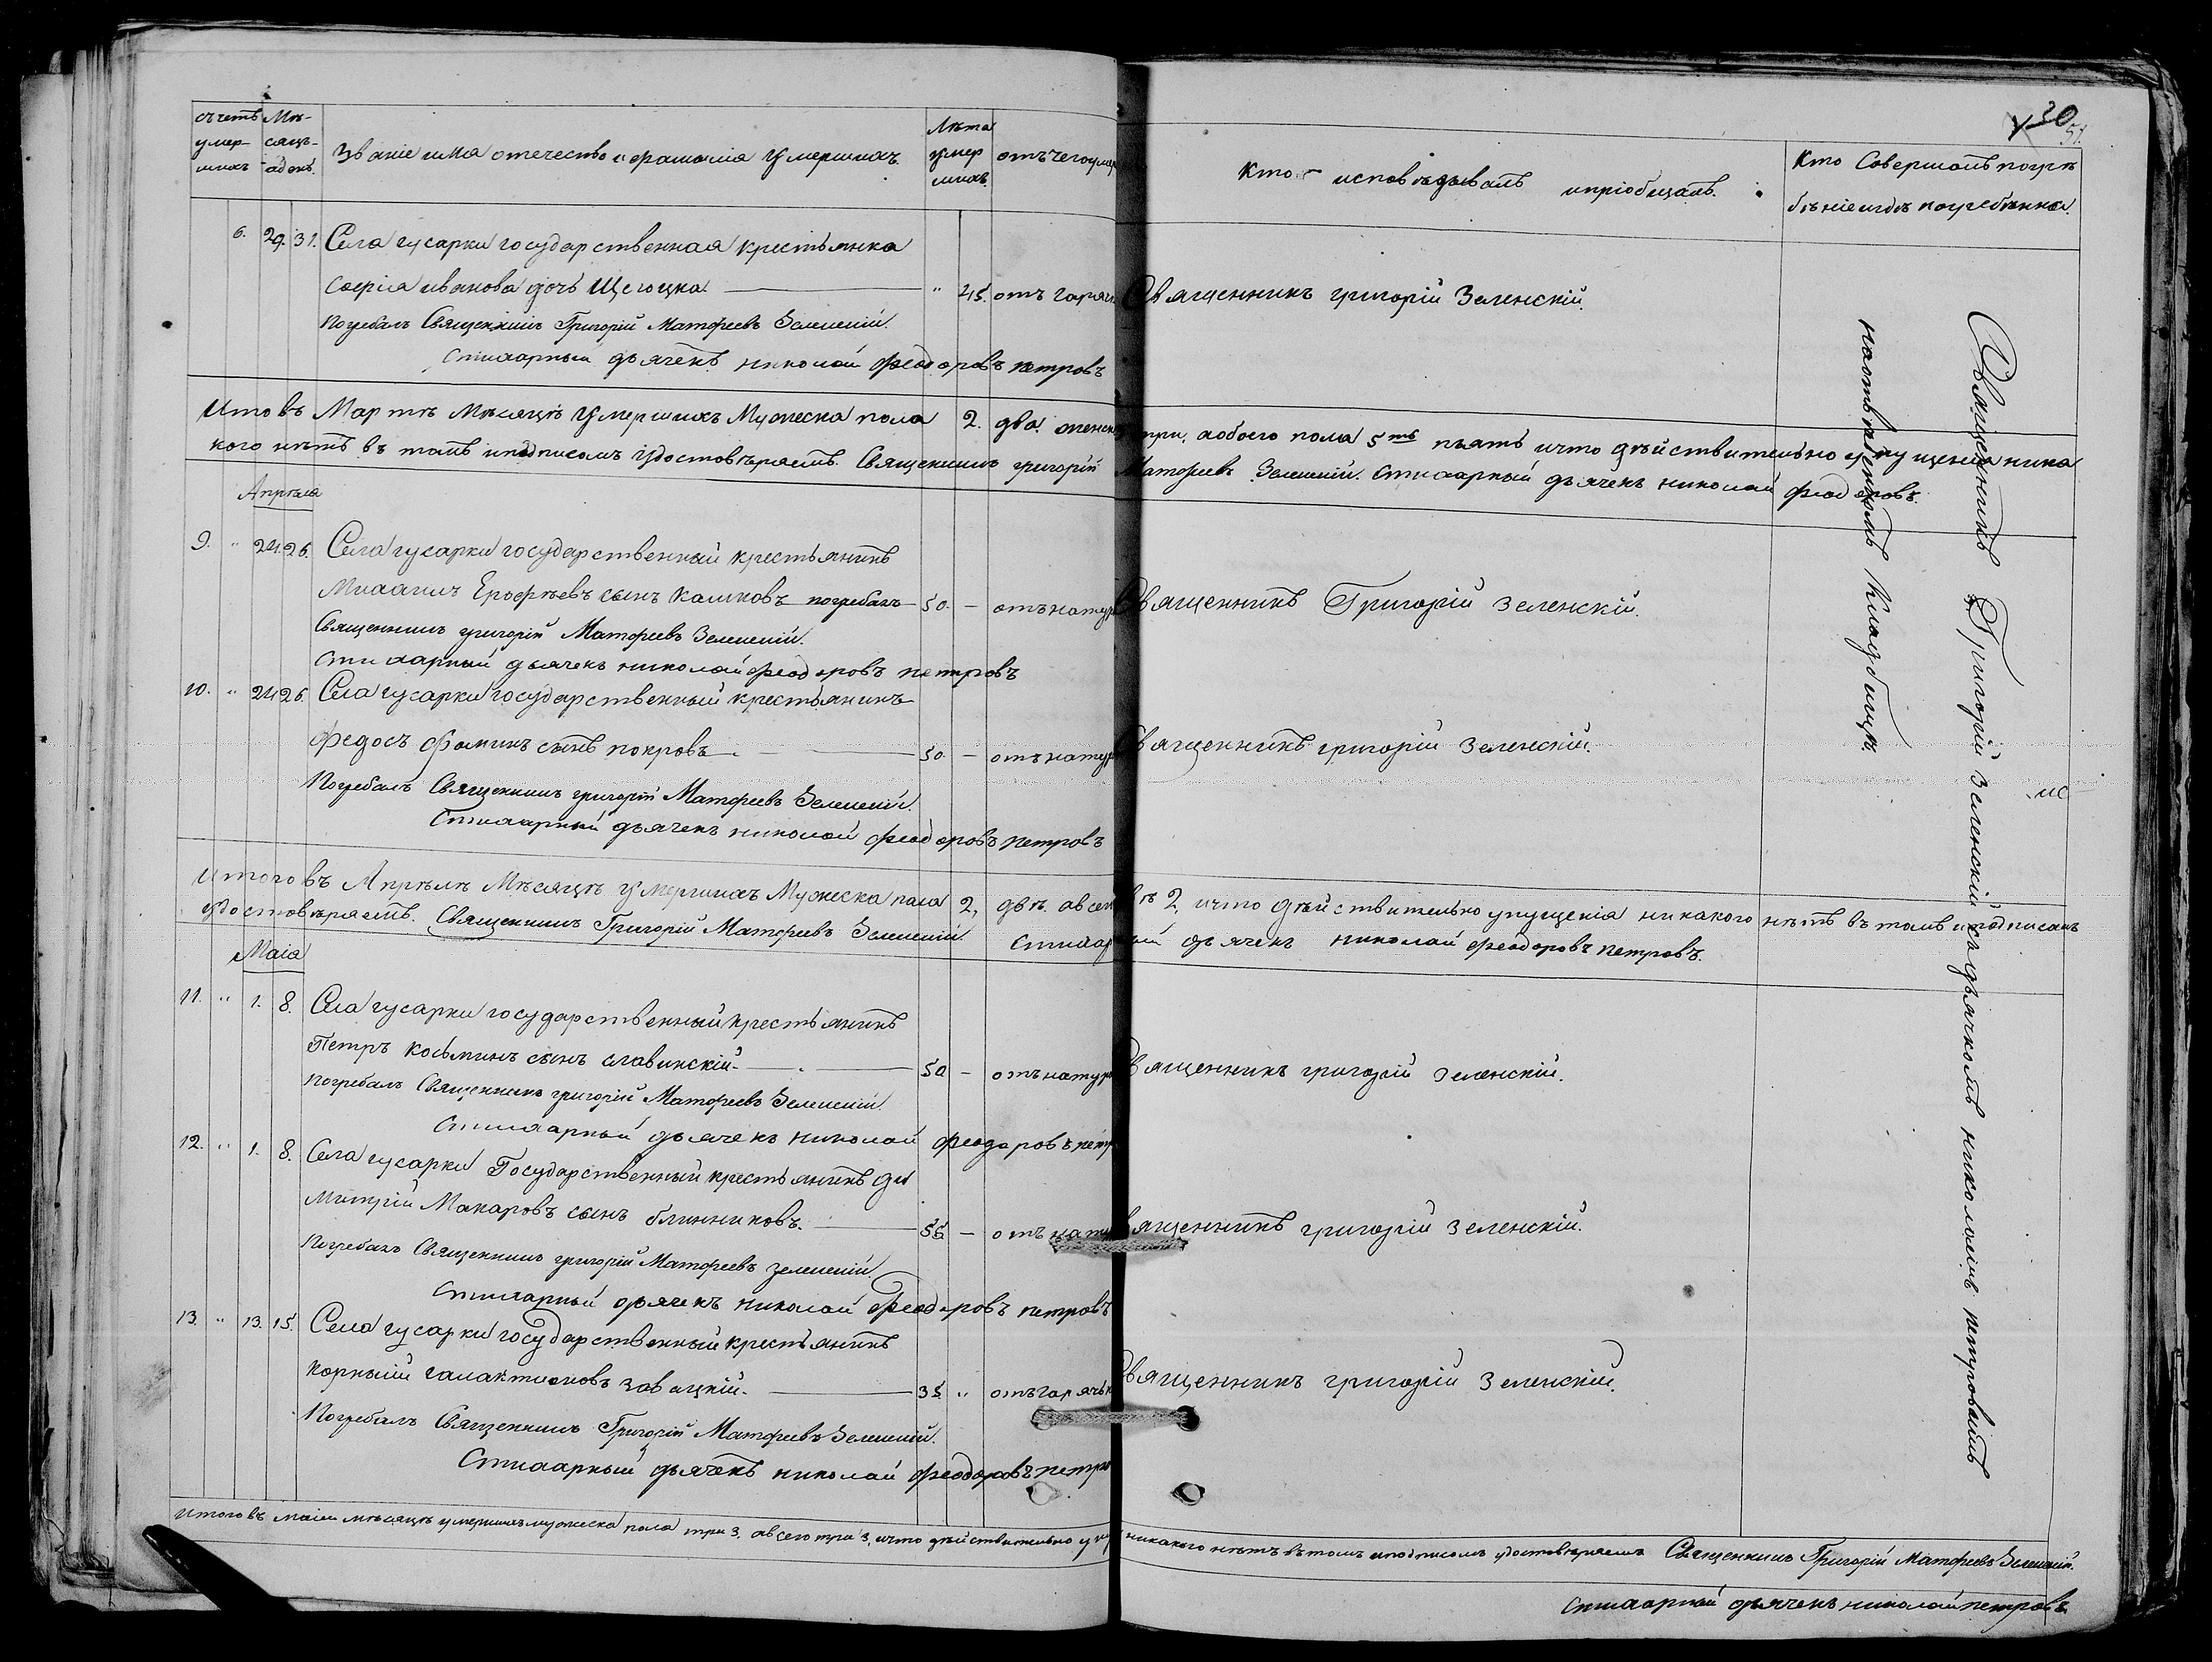 30
51.
Счетъ умер- шихъ
Мѣ- сяцъ- и день.
Званіе имя отечество и фамилія умершихъ.
Лѣта умер шихъ.
отъ чего умер
Кто исповѣдывалъ и пріобщалъ.
Кто Совершалъ погрѣ бѣніе и гдѣ погребѣнны.
6. 29. 31. Села гусарки государственная крестьянка
Софія иванова дочь Щегоцка " 45. отъ горяч Священникъ григорій Зеленскій.
Погребалъ Священникъ Григорій Матфеевъ Зеленскій.
Стихарный дьячекъ николай феодоровъ петровъ
Итого въ Мартѣ Мѣсяцѣ Умершихъ Мужеска пола 2. два. женск три. а обоего пола 5ть пьять и что дѣйствительно упущенія ника
кого нѣтъ въ томъ и подписомъ удостовѣряемъ. Священникъ григорій Матфеевъ Зеленскій. Стихарный дьячекъ николай феодоровъ.
Апрѣля
9. " 24. 26. Села гусарки государственный крестьянинъ
Михаилъ Ерофѣевъ сынъ калиновъ погребалъ 50. — отъ натур Священникъ Григорій Зеленскій.
Священникъ григорій Матфеевъ Зеленскій.
Стихарный дьячекъ николай феодоровъ петровъ
10. " 24 26. Села гусарки государственный крестьянинъ
Федосъ Фоминъ сынъ покровъ. 50. — отъ натур Священникъ григорій Зеленскій.
Погребалъ Священникъ григорій Матфеевъ Зеленскій.
Стихарный дьячекъ николай феодоровъ петровъ
Итого въ Апрѣлѣ Мѣсяцѣ Умершихъ Мужеска пола 2, двѣ. а всег 2, и что дѣйствительно упущенія никакого нѣтъ въ томъ и подписомъ
удостовѣряемъ. Священникъ Григорій Матфеевъ Зеленскій. Стихарный дьячекъ николай феодоровъ петровъ.
Маія
11. " 1. 8. Села гусарки государственный крестьянинъ
Петръ косьминъ сынъ славинскій. 50 — отъ натур Священникъ григорій Зеленскій.
Погребалъ Священникъ григорій Матфеевъ Зеленскій.
Стихарный дьячекъ николай феодоровъ петр
12. " 1. 8. Села гусарки Государственный крестьянинъ ди
митрій Макаровъ сынъ блинниковъ. 55 — отъ нату Священникъ григорій Зеленскій.
Погребалъ Священникъ григорій Матфеевъ Зеленскій.
Стихарный дьячекъ николай Феодоровъ петровъ
13. " 13. 15. Села гусарки государственный крестьянинъ
корнилій галактионовъ завацкій. 35 " отъ горячк Священникъ григорій Зеленскій.
Погребалъ Священникъ Григорій Матфеевъ Зеленскій.
Стихарный дьячекъ николай феодоровъ петро
Итого въ маіи мѣсяцѣ умершихъ мужеска пола три 3. а всего три 3, и что дѣйствительно упу никакого нѣтъ въ томъ и подписомъ удостовѣряемъ Священникъ Григорій Матфеевъ Зеленскій.
Стихарный дьячекъ николай петровъ.
Священникъ Григорій Зеленскій съ дьячкомъ николаемъ петровымъ
кладбищѣ